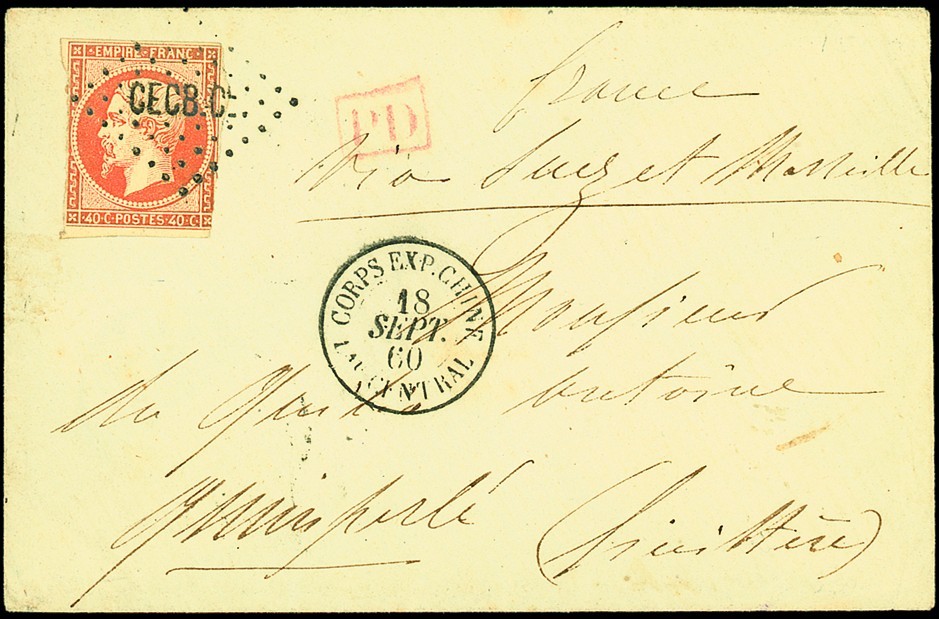 EMPIRE FRANC
CECB.CL
40·C·POSTES·40·C
PD
france
Via Suez et Marseille
CORPS EXP. CHINE
18
SEPT.
60
Bau CENTRAL
Monsieur
antoine
quimperlé (finistère)